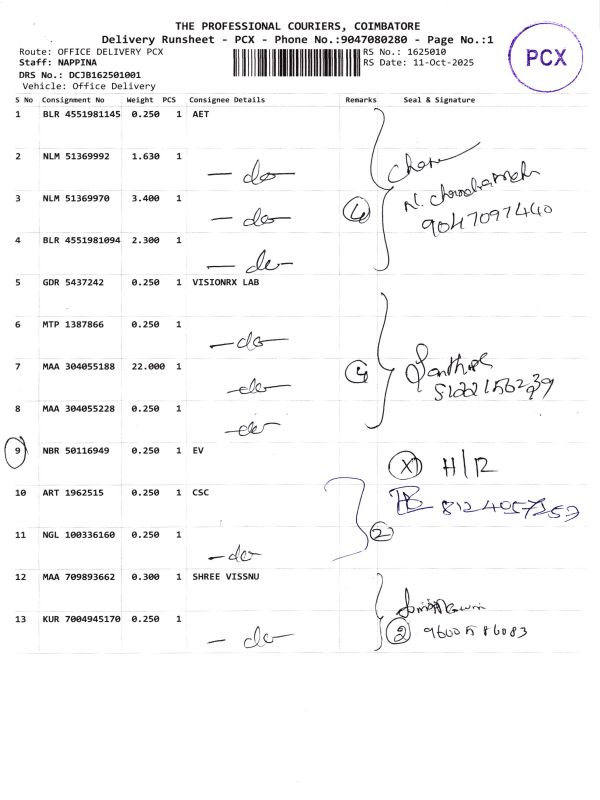 THE PROFESSIONAL COURIERS, COIMBATORE
Delivery Runsheet - PCX - Phone No.:9047080280 - Page No.:1
Route: OFFICE DELIVERY PCX
RS No.: 1625010
Staff: NAPPINA
RS Date: 11-Oct-2025
DRS No.: DCJB162501001
Vehicle: Office Delivery
PCX
S No Consignment No Weight PCS Consignee Details Remarks Seal & Signature
1 BLR 4551981145 0.250 1 AET
2 NLM 51369992 1.630 1 - do -
3 NLM 51369970 3.400 1 - do -
N.
9047097440
4 BLR 4551981094 2.300 1 - do -
5 GDR 5437242 0.250 1 VISIONRX LAB
6 MTP 1387866 0.250 1 - do -
7 MAA 304055188 22.000 1 - do - 4
8 MAA 304055228 0.250 1 - do -
9 NBR 50116949 0.250 1 EV X H/R
10 ART 1962515 0.250 1 CSC
11 NGL 100336160 0.250 1 - do - 2
12 MAA 709893662 0.300 1 SHREE VISSNU
13 KUR 7004945170 0.250 1 - do - 2 9600586083